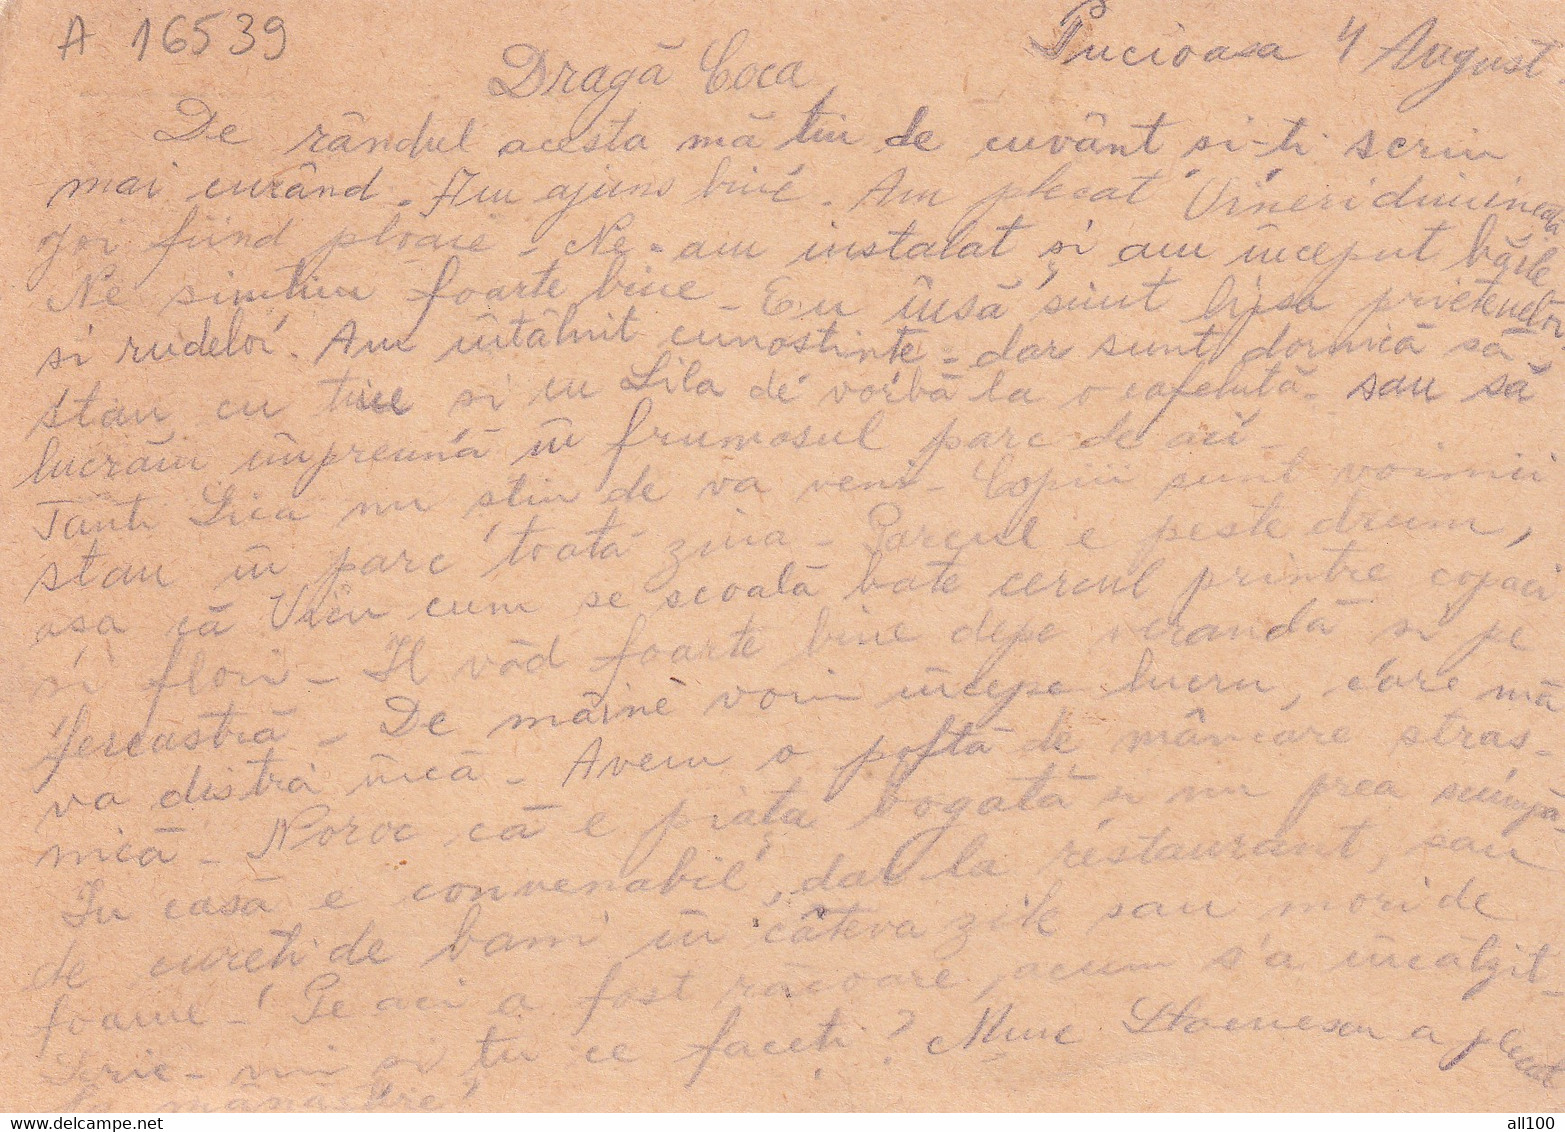 A 16539
Pucioasa 4 August.
Dragă Coca
De rândul acesta mă tin de cuvânt si-ti scriu
mai curând. Am ajuns bine. Am plecat Vineri dimineata
Joi fiind ploaie - Ne-am instalat și am început băile
Ne simtim foarte bine - Eu însă simt lipsa prietenelor
si rudelor. Am întâlnit cunostinte - dar sunt dornică să
stau cu tine si cu Lila de vorbă la o cafelută - sau să
lucrăm împreună în frumosul parc de aci -
Tanti Lica nu stiu de va veni - Copiii sunt voinici
stau în parc toată ziua - Parcul e peste drum,
asa că Vicu cum se scoală bate cercul printre copaci
si flori - Il văd foarte bine depe verandă si pe
fereastră - De mâine voi începe lucru, care mă
va distra încă - Avem o poftă de mâncare stras-
nică - Noroc că e piața bogată si nu prea scumpă
In casă e convenabil, dar la restaurant, sau
te cureti de bani în câteva zile sau mori de
foame - ! Pe aci a fost racoare, acum s'a încălzit -
Scrie-mi si tu ce faceti? Mme a plecat
la mânăstire
all100